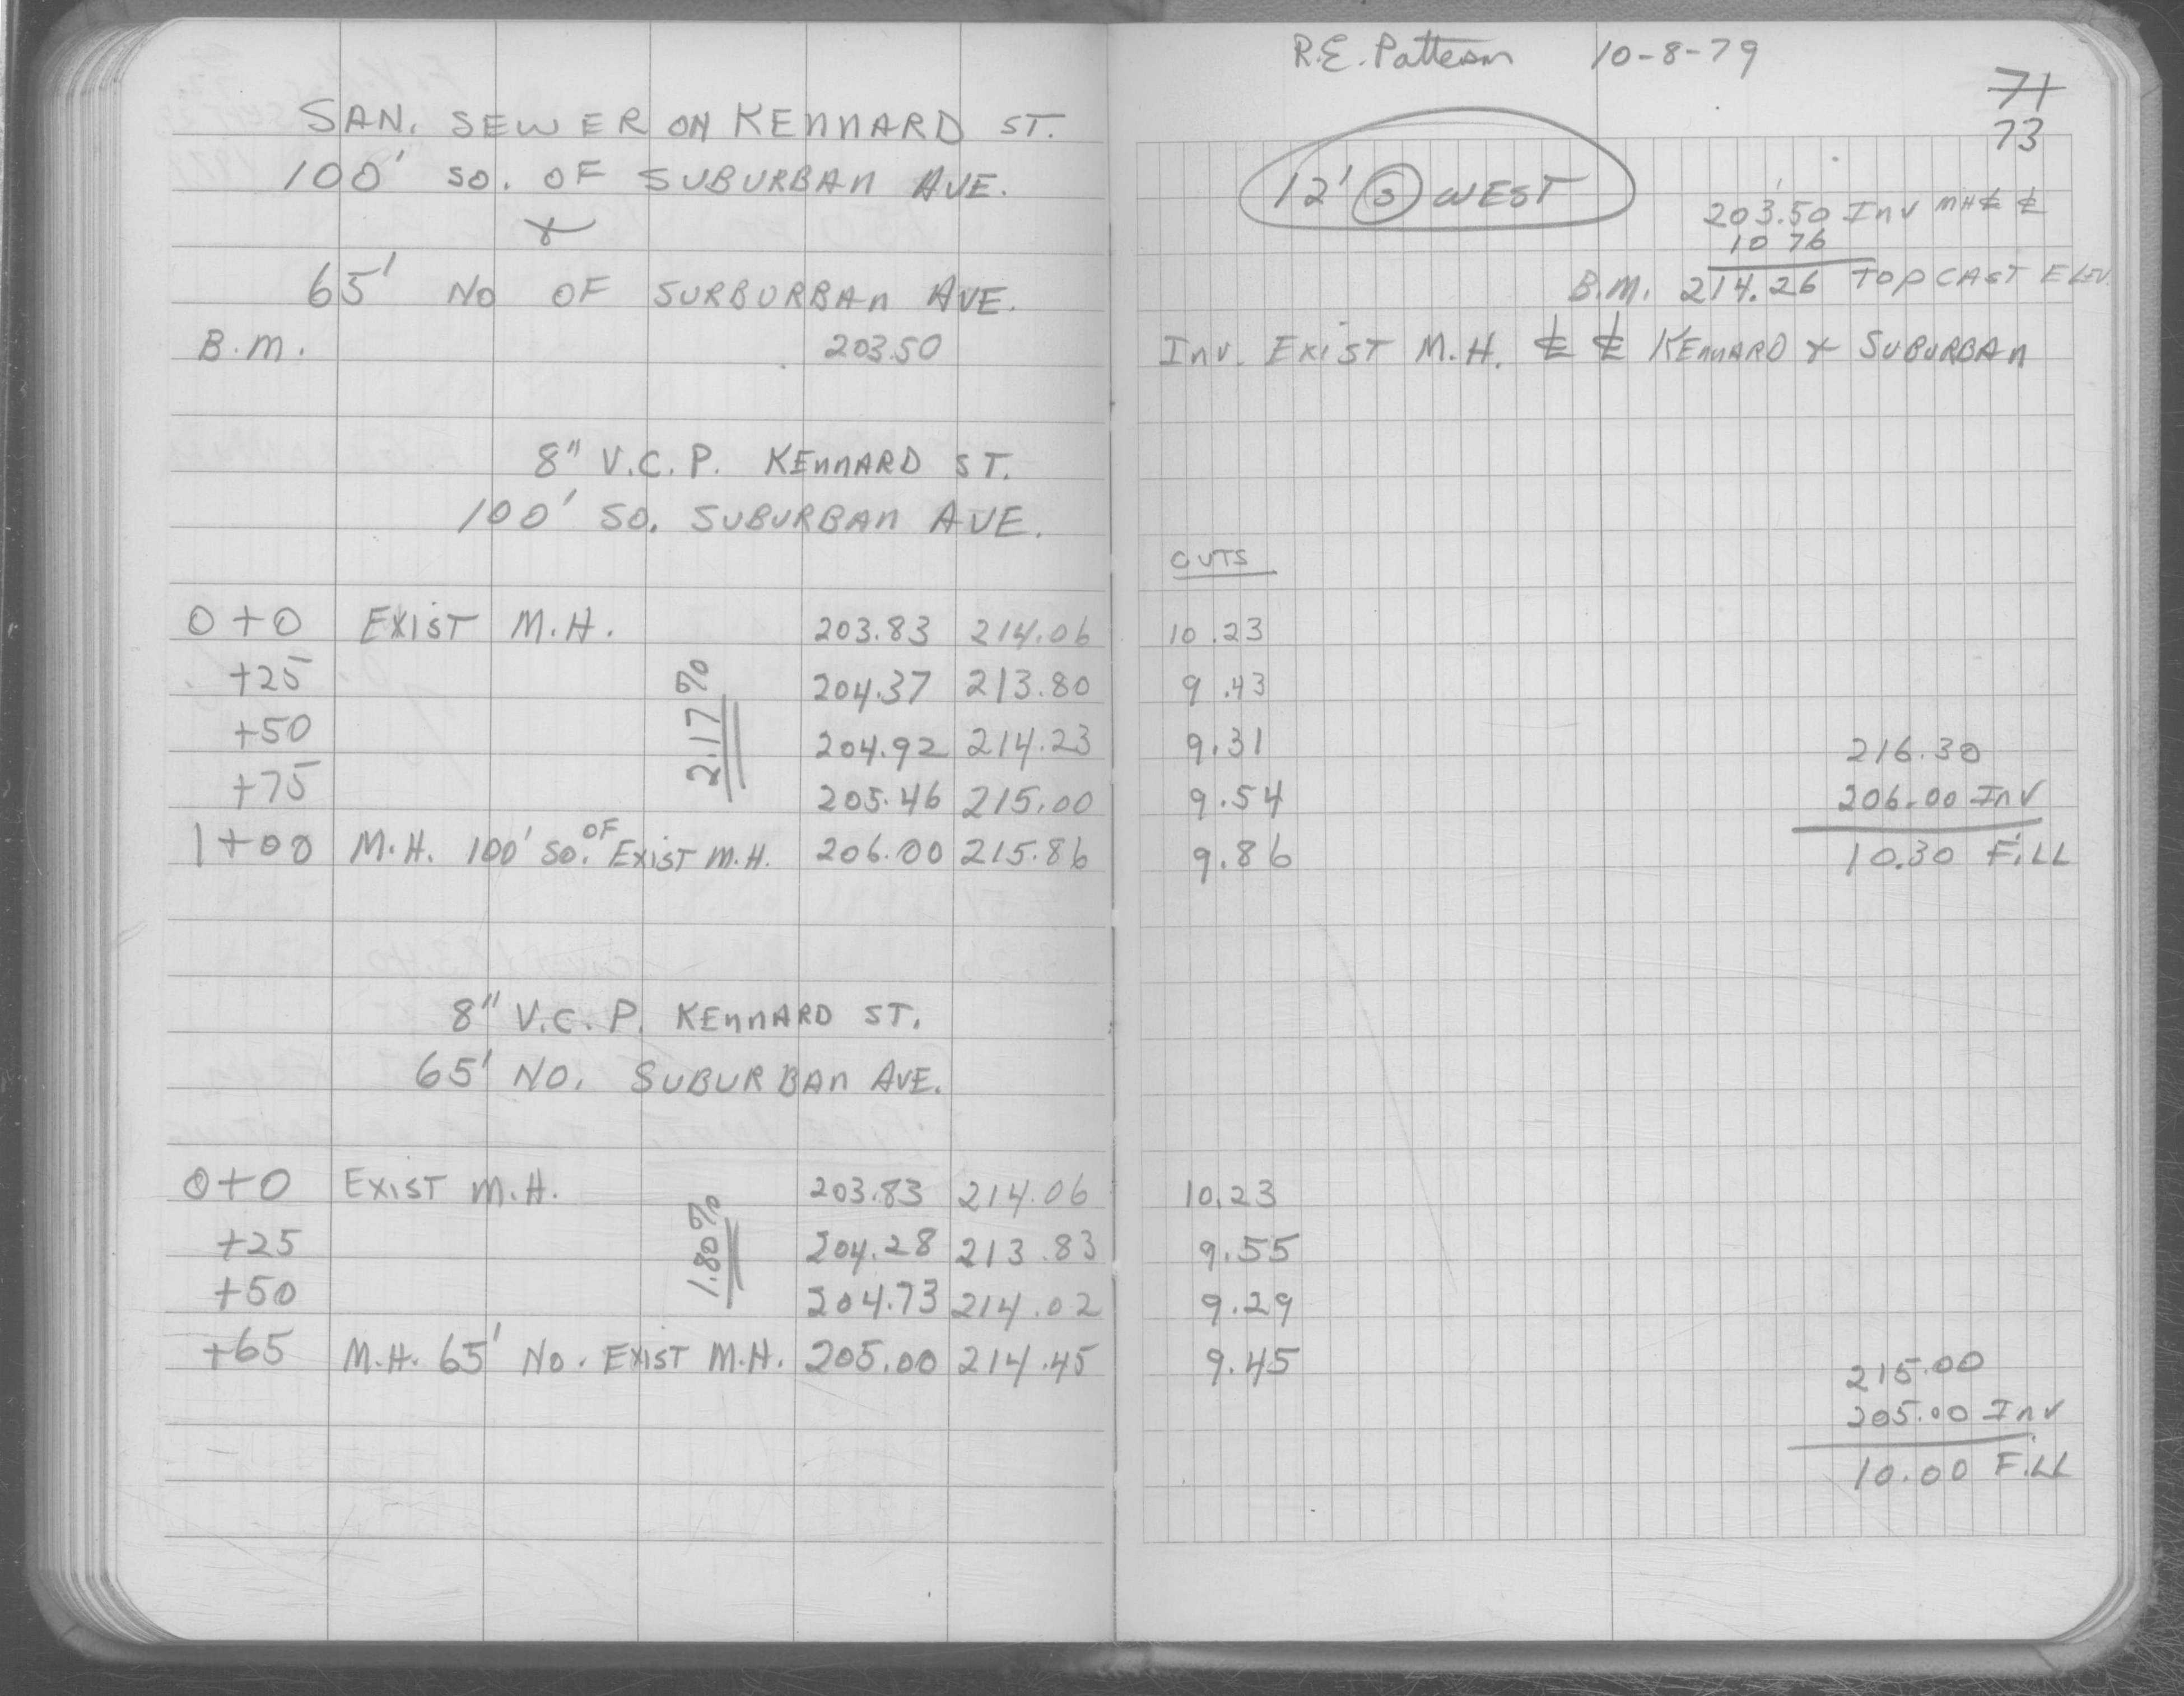 SAN. SEWER ON KENNARD ST.
100' SO. OF SUBURBAN AVE.
&
65' NO OF SURBURBAN AVE.
B.M. 203.50
8" V.C.P. KENNARD ST.
100' SO. SUBURBAN AVE.
0+0 EXIST M.H. 203.83 214.06
+25 204.37 213.80
2.17%
+50 204.92 214.23
+75 205.46 215.00
1+00 M.H. 100' SO. OF EXIST M.H. 206.00 215.86
8" V.C.P. KENNARD ST.
65' NO. SUBURBAN AVE.
0+0 EXIST M.H. 203.83 214.06
+25 204.28 213.83
1.80%
+50 204.73 214.02
+65 M.H. 65' NO. EXIST M.H. 205.00 214.45
R.E. Patterson 10-8-79
71
73
12' S WEST
203.50 INV MH ℄ ℄
10 76
B.M. 214.26 TOP CAST ELEV.
INV. EXIST M.H. ℄ ℄ KENNARD & SUBURBAN
CUTS
10.23
9.43
9.31
9.54
9.86
216.30
206.00 INV
10.30 FILL
10.23
9.55
9.29
9.45
215.00
205.00 INV
10.00 FILL